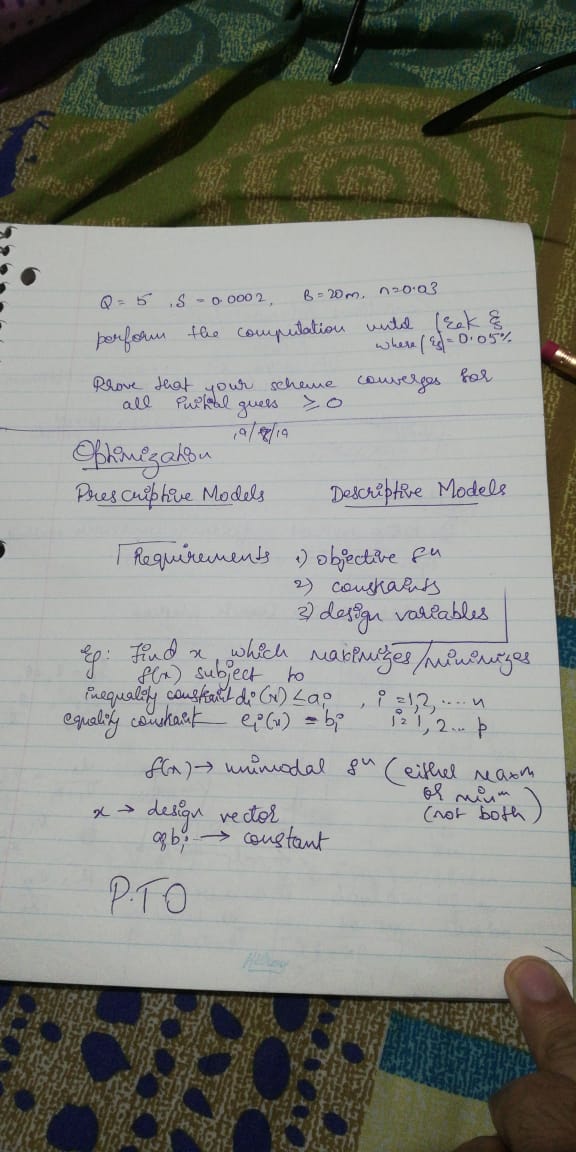 Q = 5 , S = 0.0002, B = 20m, n = 0.03
perform the computation until |εa| < εs
where |εs| = 0.05%
Prove that your scheme converges for
all initial guess ≥ 0
19/8/19
Optimization
Prescriptive Models Descriptive Models
Requirements 1) objective fn
2) constraints
3) design variables
Eg: Find x which maximizes/minimizes
f(x) subject to
inequality constraint di(x) ≤ ai , i = 1,2, ..... n
equality constraint ei(x) = bi i = 1, 2... p
f(x) → unimodal fn (either maxm
or minm
x → design vector (not both)
→ constant
P.T.O